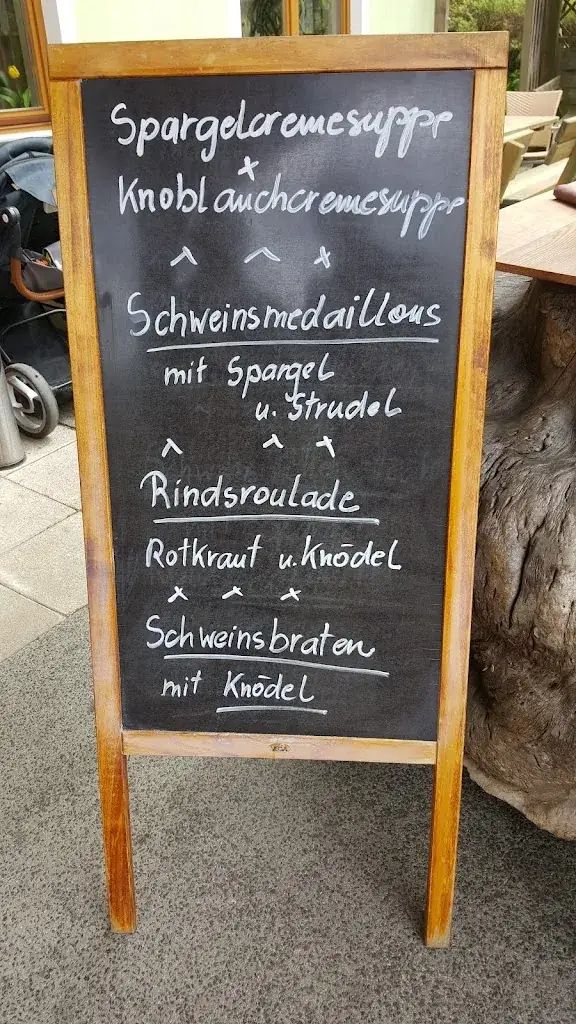 Spargelcremesuppe
Knoblauchcremesuppe
Schweinsmedaillons
mit Spargel
u. Strudel
Rindsroulade
Rotkraut u. Knödel
Schweinsbraten
mit Knödel